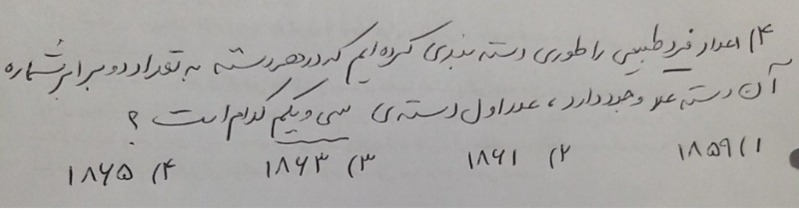 ۴) اعداد فرد طبیعی را طوری دسته بندی کرده ایم که در هر دسته به تعداد دو برابر شماره
آن دسته عدد وجود دارد، عدد اول دسته ی سی و یکم کدام است ؟
۱) ۱۸۵۹ ۲) ۱۸۶۱ ۳) ۱۸۶۳ ۴) ۱۸۶۵